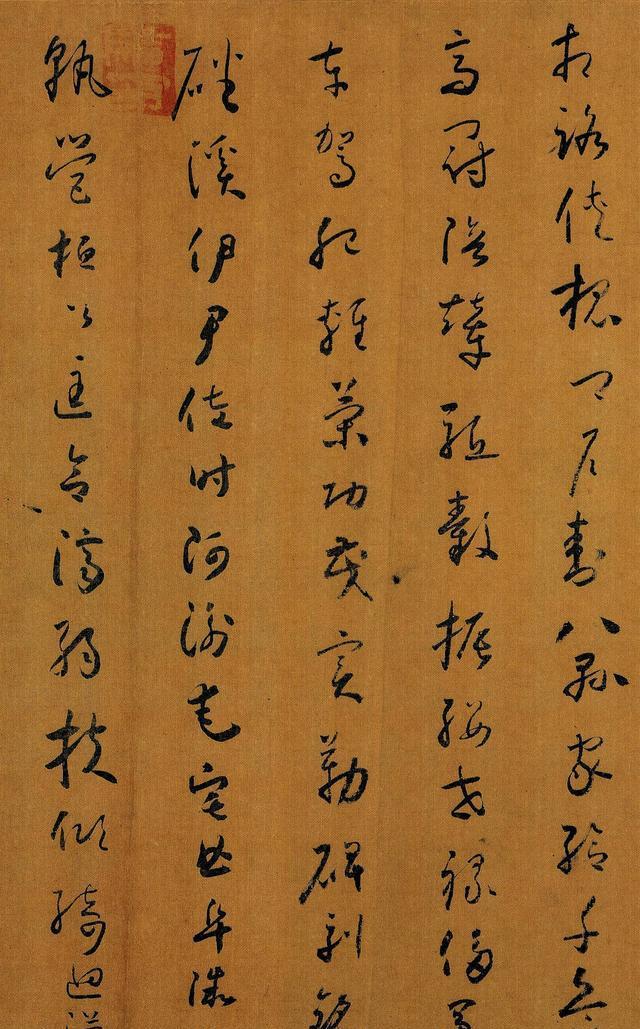 相路俠槐卿戶封八縣家給千兵
高冠陪輦驅轂振纓世祿侈富
車駕肥輕策功茂實勒碑刻銘
磻溪伊尹佐時阿衡奄宅曲阜微
孰營桓公匡合濟弱扶傾綺迴漢